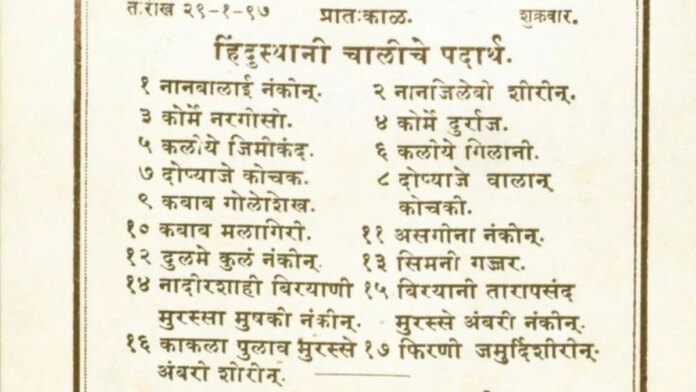 तःरीख २९-१-९७ प्रातःकाळ. शुक्रवार.
हिंदुस्थानी चालीचे पदार्थ.
१ नानबालाई नंकीन्. २ नानजिलेबो शीरीन्.
३ कोर्मे नरगोसो. ४ कोर्मे दुर्राज.
५ कलीये जिमीकंद. ६ कलीये गिलानी.
७ दोप्याजे कोचक. ८ दोप्याजे वालान्
९ कबाब गोलेशेख. कोचकी.
१० कबाब मलागिरी. ११ असगीना नंकीन्.
१२ दुलमे कुलं नंकीन्. १३ सिमनी गज्जर.
१४ नादीरशाही बिरयाणी १५ बिरयानी तारापसंद
मुरस्सा मुषकी नंकीन्. मुरस्से अंबरी नंकीन्.
१६ काकला पुलाव मुरस्से १७ फिरणी जमुर्दिशीरीन्.
अंबरी शीरीन्.